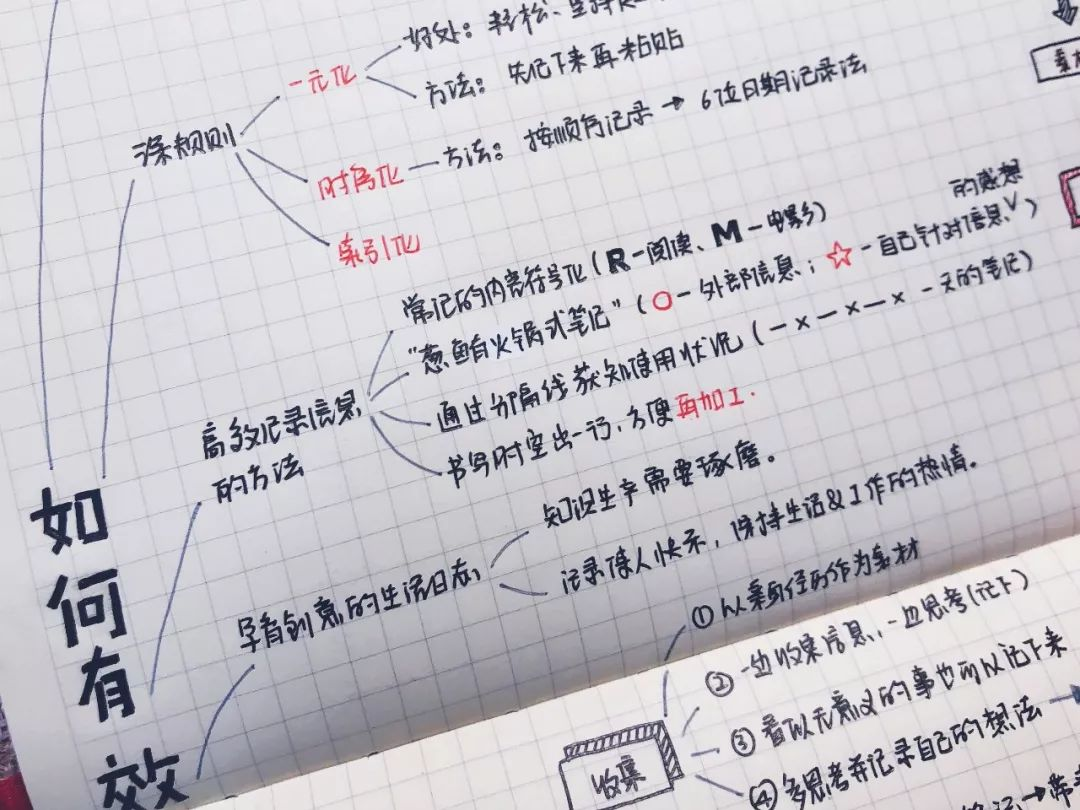 如何有效
规则
一元化
好处：轻松、
方法：先记下来再粘贴
时序化
方法：按顺序记录→6位日期记录法
索引化
高效记录信息的方法
常记的内容符号化（R-阅读、M-电影）
的感想
"葱鲔火锅式笔记"（○-外部信息；☆-自己针对信息∨）
通过分隔线获知使用状况（-×-×-×-天的笔记）
书写时空出一行，方便再加工.
有创意的生活日志
知识生产需要琢磨。
记录使人快乐，保持生活&工作的热情。
收集
① 以亲身经历作为素材
② 一边收集信息、一边思考（记下）
③ 看似无意义的事也可以记下来
④ 多思考并记录自己的想法